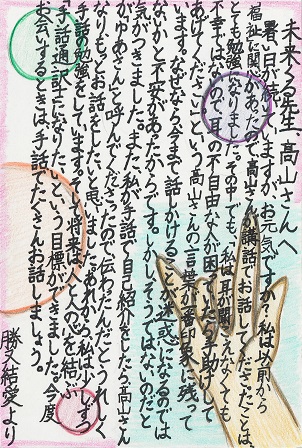 未来くる先生 高山さんへ
暑い日が続いていますが、お元気ですか。私は以前から
福祉に関心があったので高山さんが講話でお話してくださったことは、
とても勉強になりました。その中でも、「私は耳が聞こえなくても
不幸ではないので、耳の不自由な人が困っていたら手助けして
あげてください」という高山さんの言葉が一番印象に残って
います。なぜなら今まで話しかけることが迷惑になるのでは
ないかと不安があったからです。しかし、そうではないのだと
気がつきました。また、私が手話で自己紹介をしたら高山さん
が「ゆあさん」と呼んでくださったので伝わったんだとうれしく
なりもっとお話をしたいと思いました。あれから、私は、少しずつ
手話の勉強をしています。そして将来は、「人と人の心を結ぶ
「手話通訳士」になりたいという目標ができました。今度
お会いするときは、手話でたくさんお話しましょう。
勝又結愛より